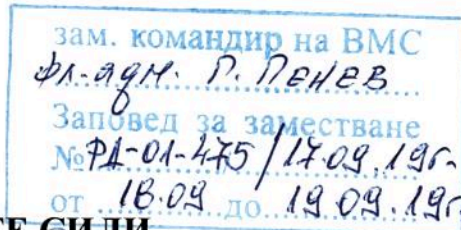 зам. командир на ВМС
фл. адм. П. ПЕНЕВ
Заповед за заместване
№ РД-01-475/17.09.19г.
от 18.09 до 19.09.19г.
СИЛИ